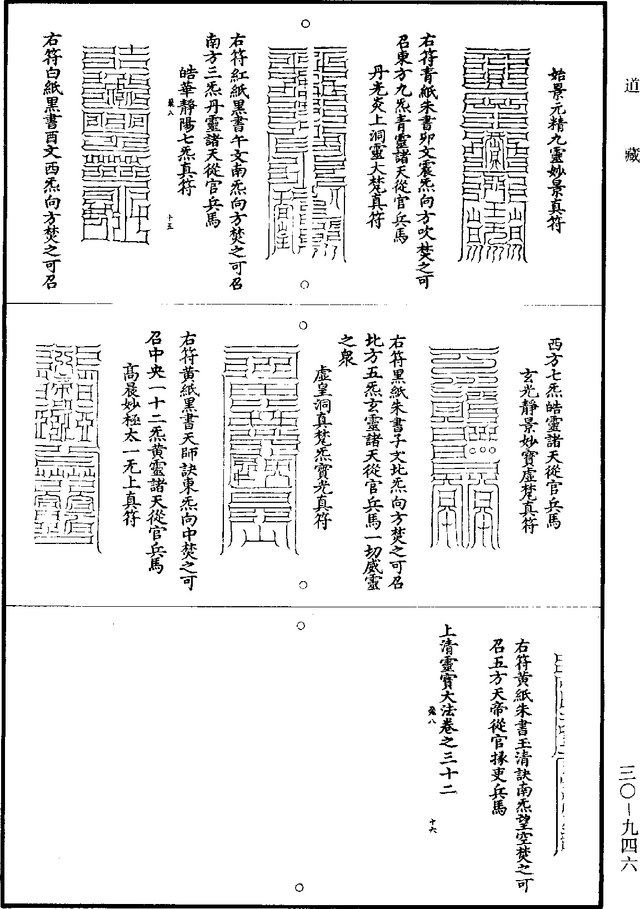 道藏
始景元精九靈妙景真符
右符青紙朱書卯文震炁向方吹焚之可
召東方九炁青靈諸天從官兵馬
丹光炎上洞靈大梵真符
右符紅紙黑書午文南炁向方焚之可召
南方三炁丹靈諸天從官兵馬
皓華靜陽七炁真符
十五
右符白紙黑書酉文西炁向方焚之可召
西方七炁皓靈諸天從官兵馬
玄光靜景妙寶虛梵真符
右符黑紙朱書子文北炁向方焚之可召
北方五炁玄靈諸天從官兵馬一切威靈
之衆
虛皇洞真梵炁寶光真符
右符黃紙黑書天師訣東炁向中焚之可
召中央一十二炁黃靈諸天從官兵馬
高晨妙極太一无上真符
右符黃紙朱書玉清訣南炁望空焚之可
召五方天帝從官掾吏兵馬
上清靈寶大法卷之三十二
十六
三〇—九四六